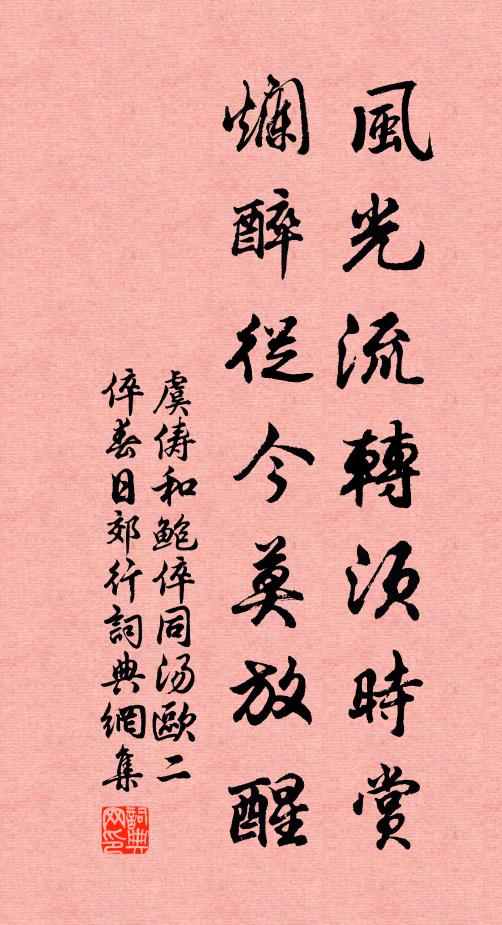 風光流轉須時賞
爛醉從今莫放醒
虞儔和鮑倅同湯歐二
倅春日郊行詞典網集
詞典
网印